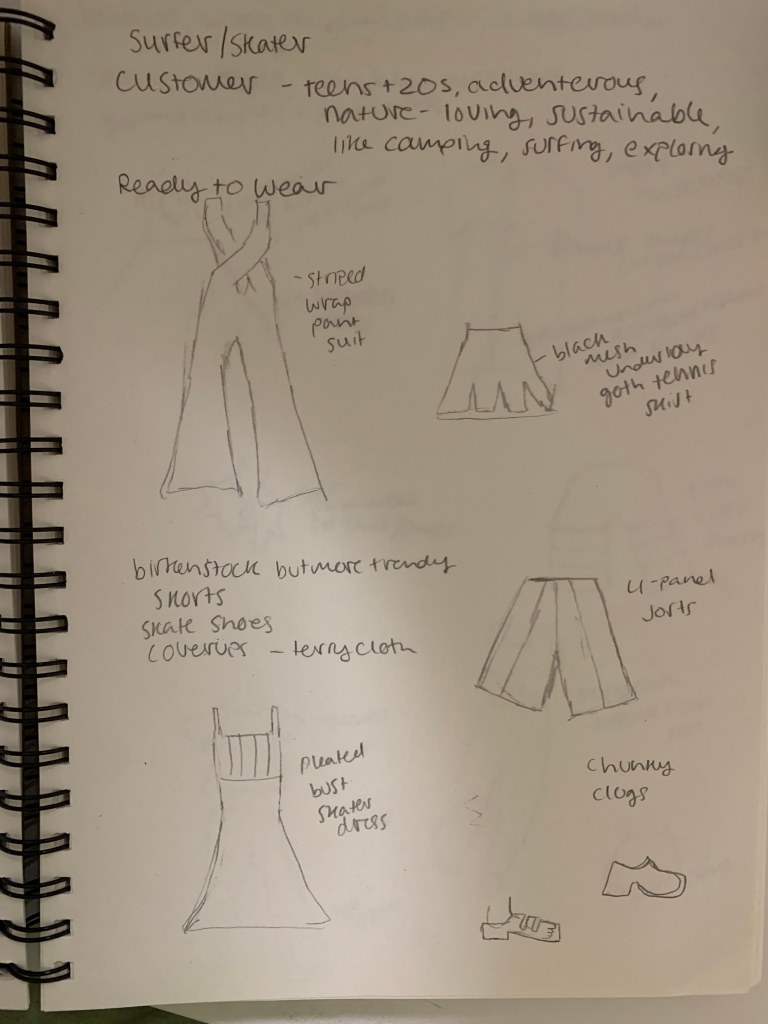 Surfer/Skater
Customer - teens + 20s, adventerous,
nature-loving, sustainable,
like camping, surfing, exploring
Ready to Wear
- striped
wrap
pant
suit
black
mesh
underlay
goth tennis
skirt
birkenstock but more trendy
skorts
skate shoes
coverups - terrycloth
4-panel
jorts
pleated
bust
skater
dress
chunky
clogs